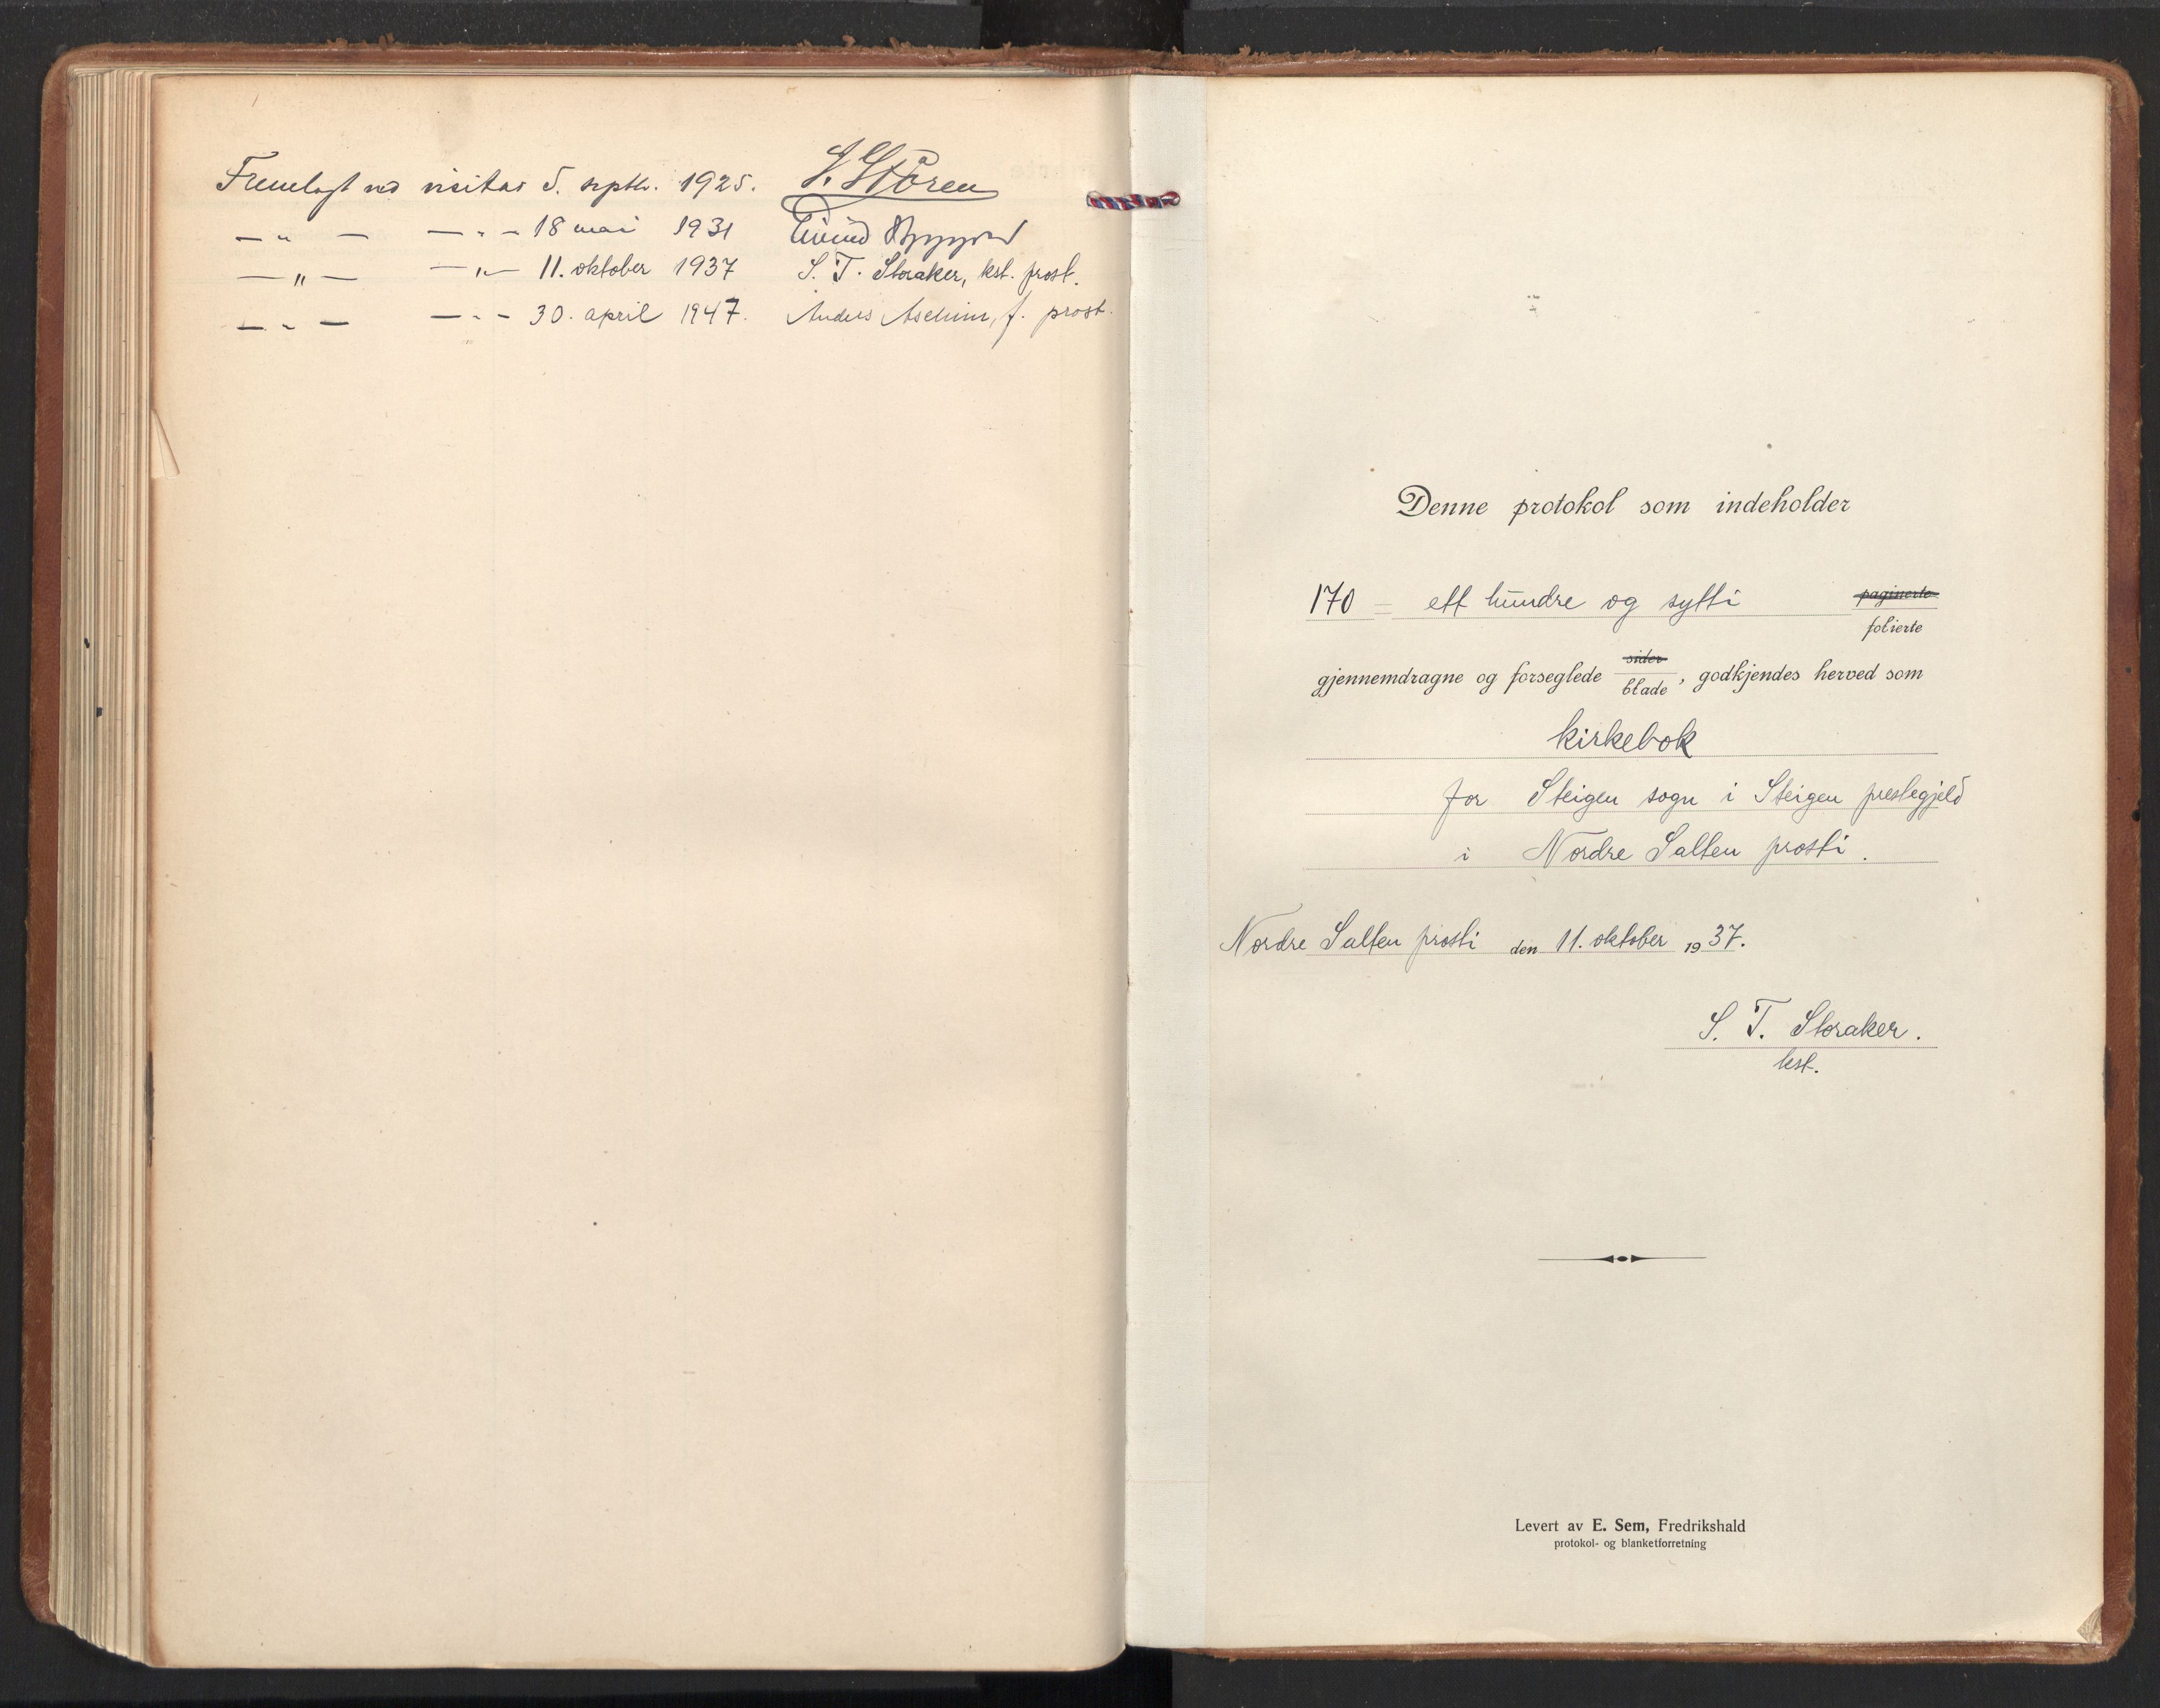 Fremlagt ved visitas 5. septbr. 1925. J. Støren
— " — — " — 18 mai 1931 Eivind
— " — — " — 11. oktober 1937 S. T. Storaker, kst. prost.
— " — — " — 30. april 1947. Anders Aschim, f. prost.
Denne protokol som indeholder
170 = ett hundre og sytti paginerte
folierte
gjennemdragne og forseglede sider
blade, godkjendes herved som
kirkebok
for Steigen sogn i Steigen prestegjeld
i Nordre Salten prosti.
Nordre Salten prosti den 11. oktober 1937.
S. T. Storaker.
kst.
Levert av E. Sem, Fredrikshald
protokol- og blanketforretning